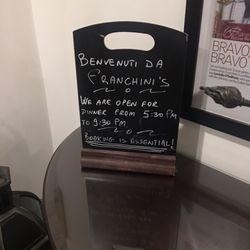 BENVENUTI DA
FRANCHINI'S
WE ARE OPEN FOR
DINNER FROM 5:30 PM
TO 9:30 PM
BOOKING IS ESSENTIAL!
BRAVO
BRAVO